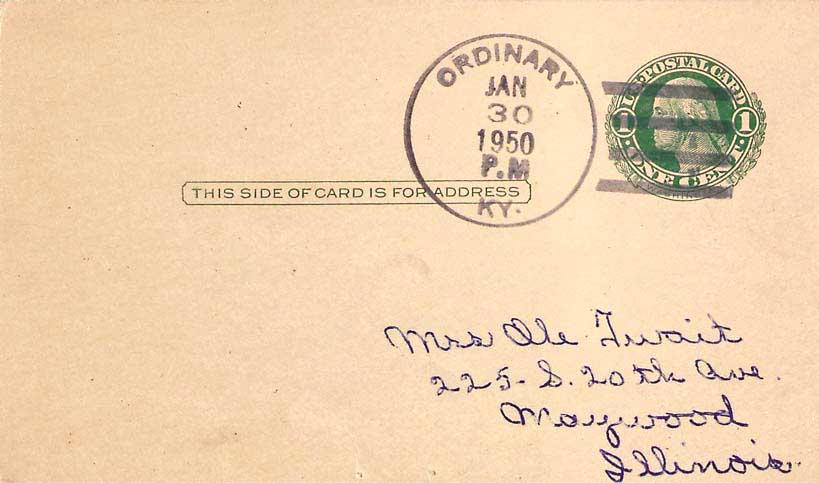 ORDINARY
JAN
30
1950
P.M
KY.
U.S. POSTAL CARD
1 1
ONE CENT
THIS SIDE OF CARD IS FOR ADDRESS
Mrs Ole Twait
225 - S. 20th Ave.
Maywood
Illinois.